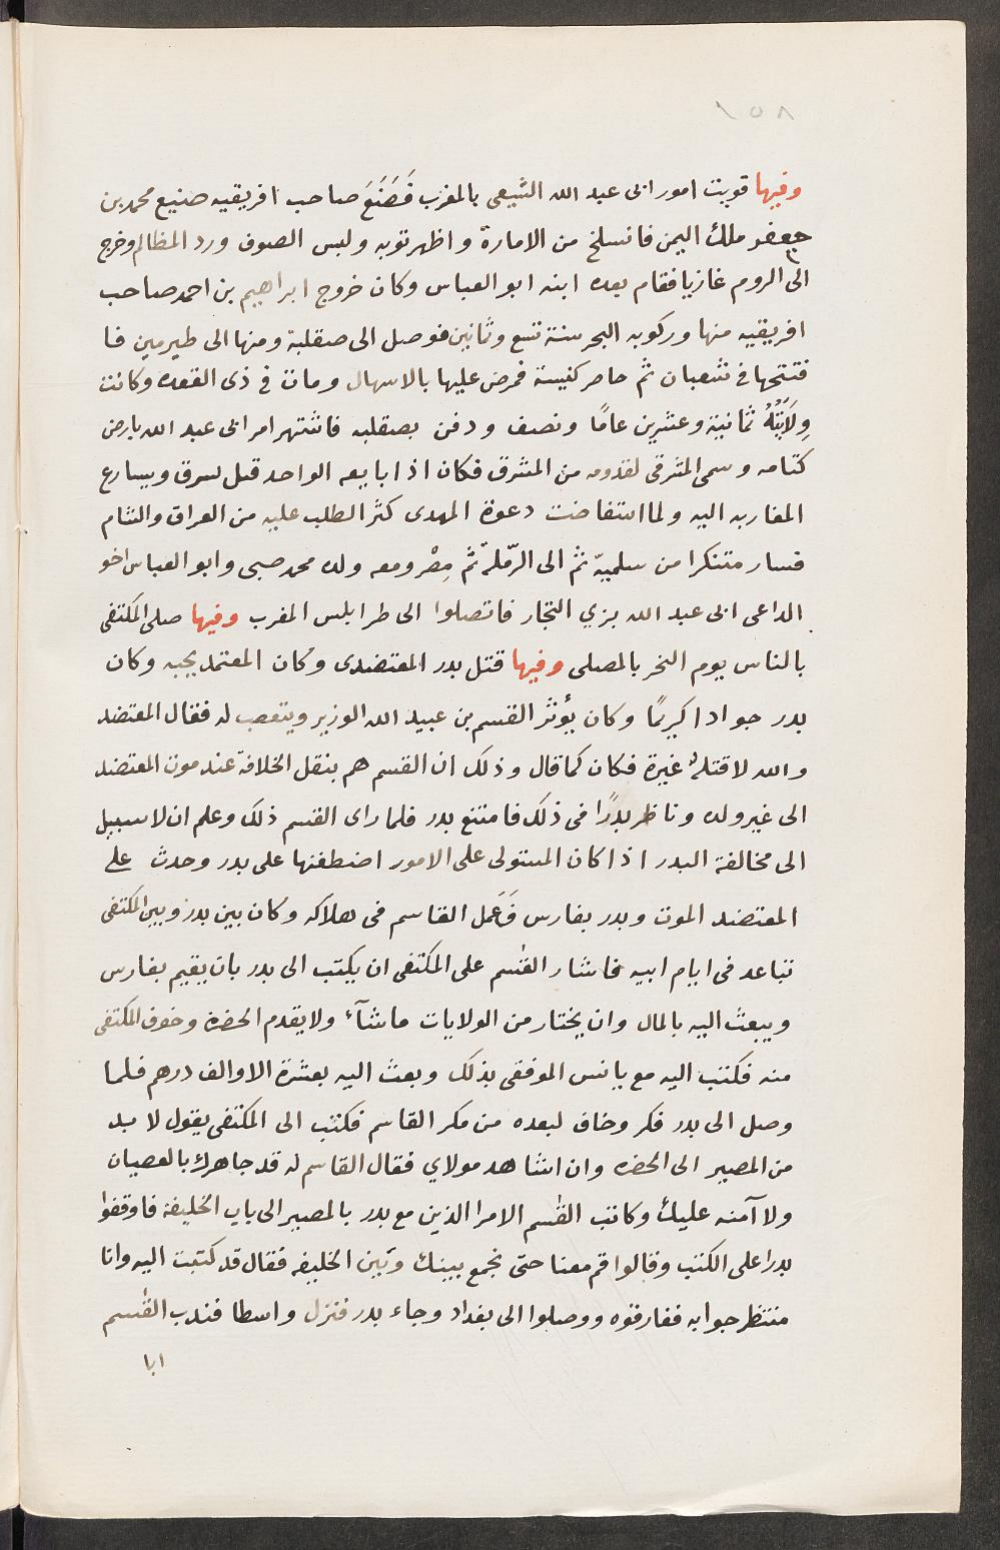 ١٥٨
وفيها قويت امور ابى عبد الله الشيعى بالمغرب فَصَنَعَ صاحب افريقيه صنيع محمد بن
جعفر ملك اليمن فانسلخ من الامارة واظهر توبه ولبس الصوف ورد المظالم وخرج
الى الروم غازيا فقام بعده ابنه ابو العباس وكان خروج ابراهيم بن احمد صاحب
افريقيه منها وركوبه البحر سنة تسع وثمانين فوصل الى صقلبة ومنها الى طيرمين فا
فتتحها فى شعبان ثم حاصر كنيسة فمرض عليها بالاسهال ومات فى ذى القعده وكانت
وِلَايَتُهُ ثمانية وعشرين عامًا ونصف ودفن بصقلبه فاشتهر امر ابى عبد الله بارض
كتامه وسمى المشرقى لقدومه من المشرق فكان اذا بايعه الواحد قيل سرق ويسارع
المغاربه اليه ولما استفاضت دعوة المهدى كثر الطلب عليه من العراق والشام
فسار متنكرا من سلميّة ثم الى الرّملة ثمّ مِصْر ومعه ولده محمد صبى وابو العباس اخو
الداعى ابى عبد الله بزي التجار فاتصلوا الى طرابلس المغرب وفيها صلى المكتفى
بالناس يوم النحر بالمصلى وفيها قتل بدر المعتضدى وكان المعتمد يحبه وكان
بدر جوادا كريمًا وكان يؤثر القسم بن عبيد الله الوزير ويتعصب له فقال المعتضد
والله لا قتله غيرة فكان كما قال وذلك ان القسم هم بنقل الخلافة عند موت المعتضد
الى غير ولده وناظر بدرًا فى ذلك فامتنع بدر فلما راى القسم ذلك وعلم ان لا سبيل
الى مخالفة البدر اذا كان المستولى على الامور اضطغنها على بدر وحدث على
المعتضد الموت وبدر بفارس فَعَمل القاسم فى هلاكه وكان بين بدر وبين المكتفى
تباعد فى ايام ابيه فاشار القسم على المكتفى ان يكتب الى بدر بان يقيم بفارس
ويبعث اليه بالمال وان يختار من الولايات ماشآء ولا يقدم الحضرة وخوف المكتفى
منه فكتب اليه مع يانس الموفقى بذلك وبعث اليه بعشرة الاوالف درهم فلما
وصل الى بدر فكر وخاف لبعده من مكر القاسم فكتب الى المكتفى يقول لا بد
من المصير الى الحضره وان اشاهد مولاي فقال القاسم له قد جاهرك بالعصيان
ولا آمنه عليك وكاتب القسم الامرا الذين مع بدر بالمصير الى باب الخليفة فاوقفوا
بدرا على الكتب وقالوا قم معنا حتى نجمع بينك وبين الخليفه فقال قد كتبت اليه وانا
منتظر جوابه ففارقوه ووصلوا الى بغداد وجاء بدر فنزل واسطا فندب القسم
ابا